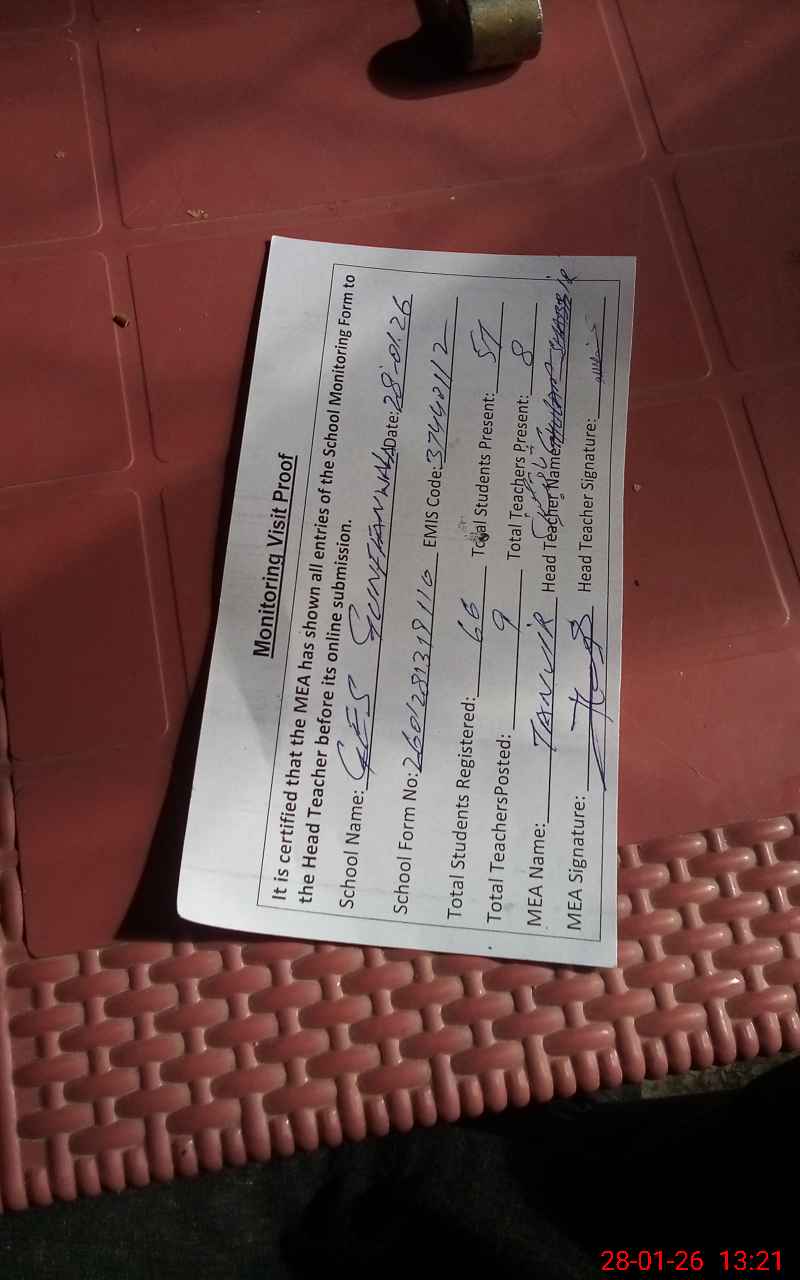 Monitoring Visit Proof
It is certified that the MEA has shown all entries of the School Monitoring Form to
the Head Teacher before its online submission.
School Name: GES Date: 28-01.26
School Form No: 260128131811 EMIS Code: 37440112
Total Students Registered: 66 Total Students Present: 57
Total TeachersPosted: 9 Total Teachers Present: 8
MEA Name: TANVIR Head Teacher Name
MEA Signature: Head Teacher Signature:
28-01-26 13:21